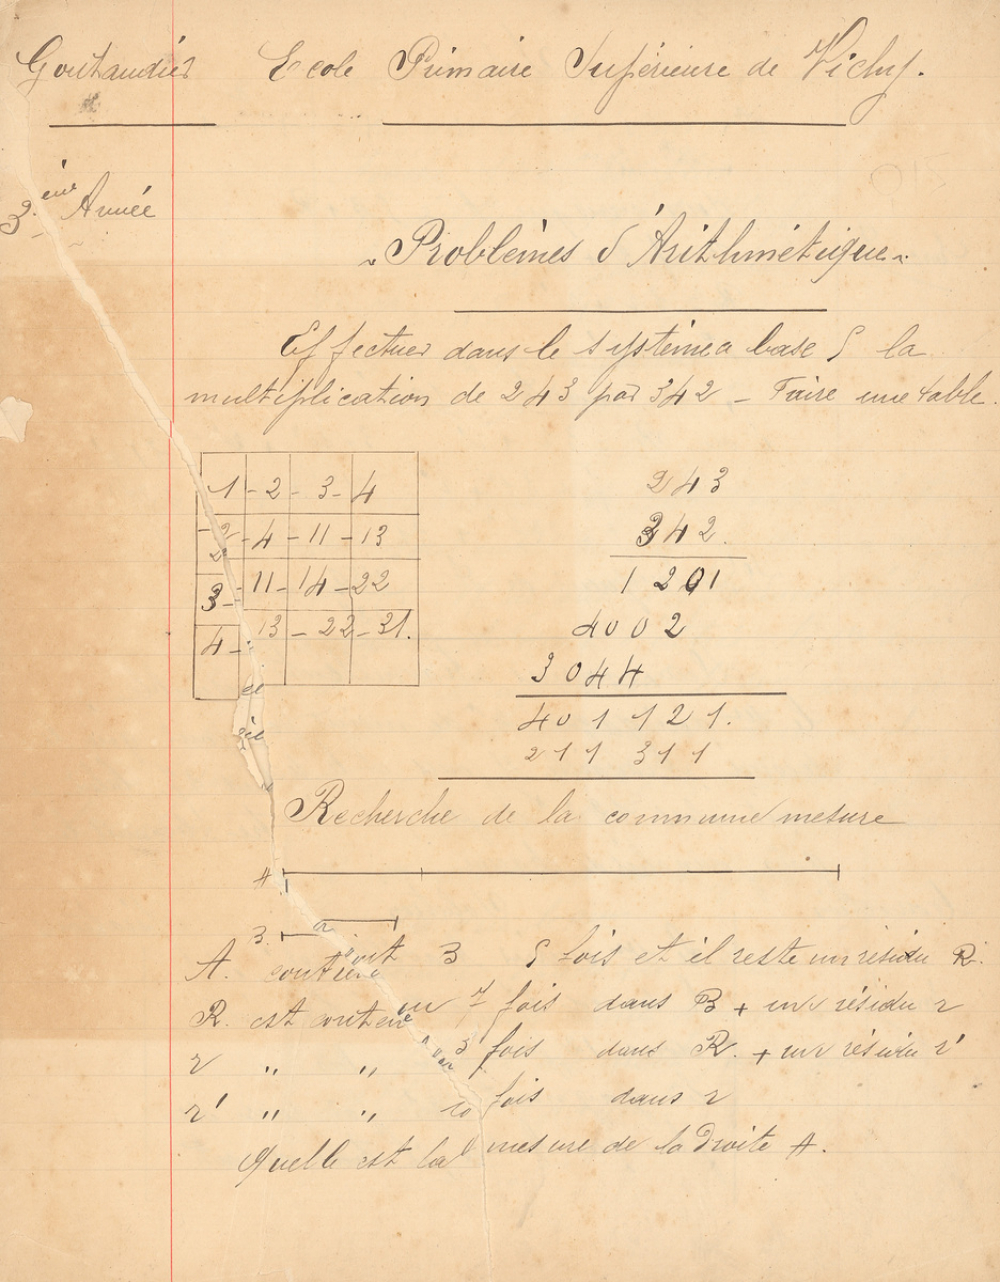 Gouhaudier Ecole Primaire Supérieure de Vichy.
3.ème Année
Problèmes d'Arithmétique
Effectuer dans le système a base 5 la
multiplication de 243 par 342 _ Faire une table.
1 - 2 - 3 - 4
2 - 4 - 11 - 13
3 - 11 - 14 - 22
4 - 13 - 22 - 31.
243
342.
1201
4002
3044
401121.
211311
Recherche de la commune mesure
A
B
A. contient B 5 fois et il reste un résidu R.
R. est contenu 7 fois dans B + un résidu r
r " " 3 fois dans R. + un résidu r'
r' " " 10 fois dans r
Quelle est la mesure de la Droite A.